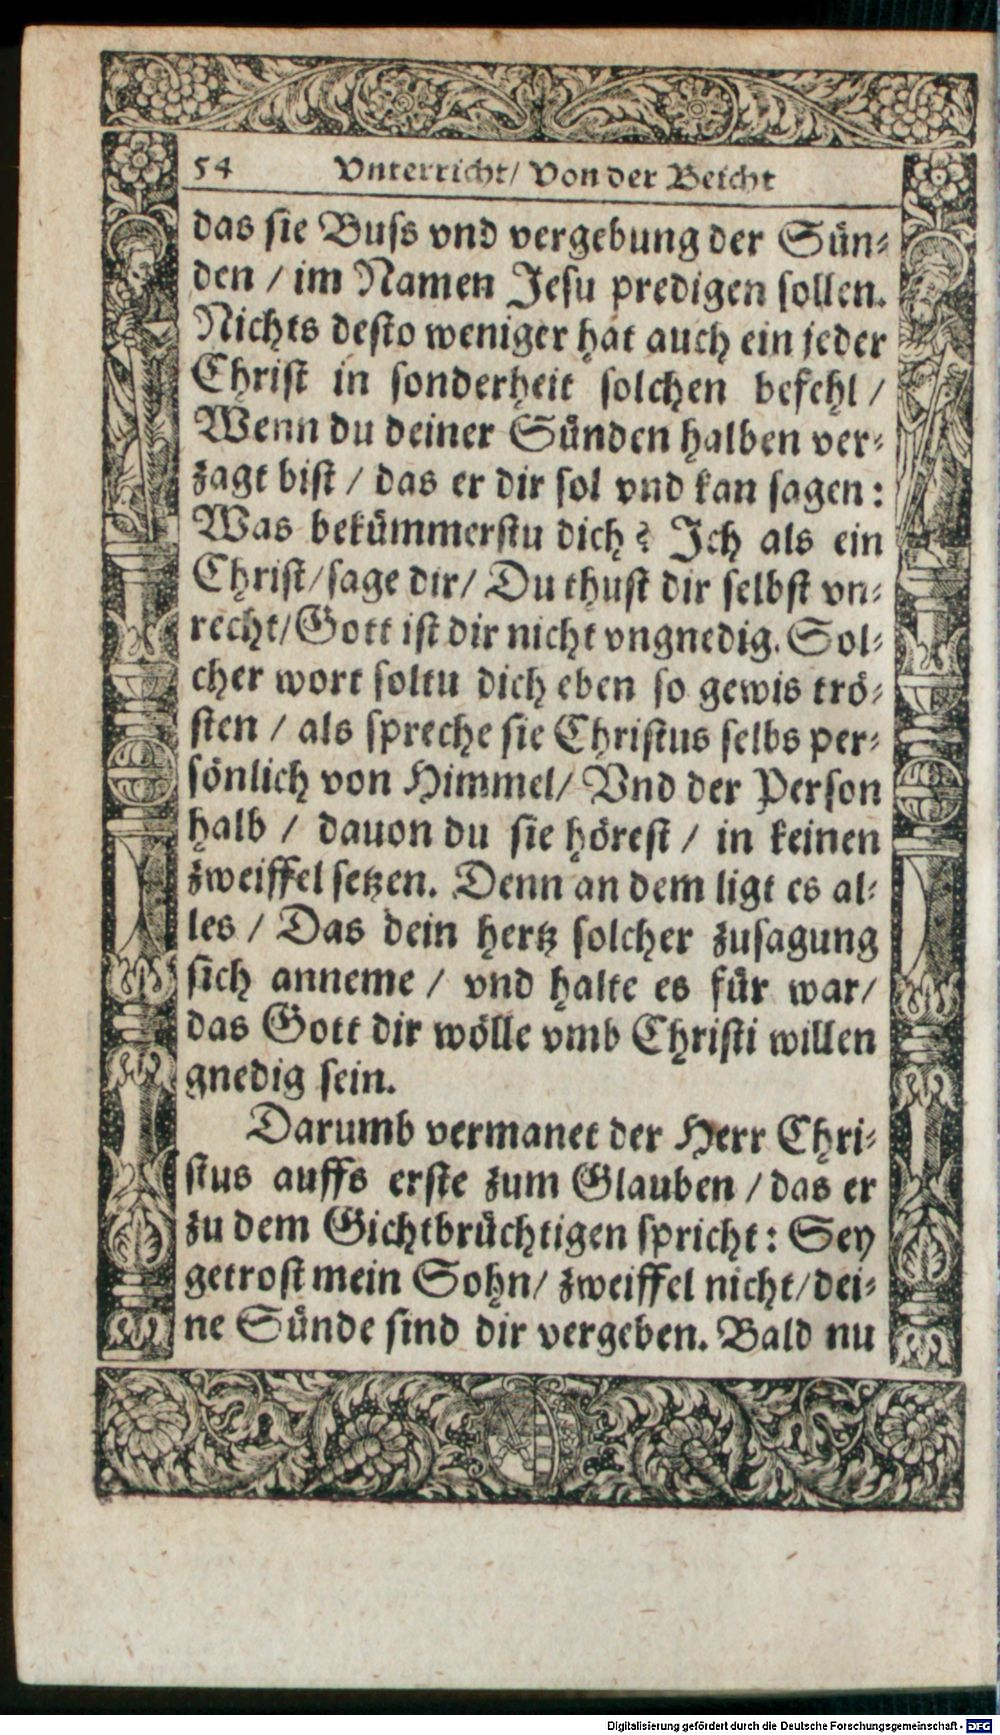 54 Vnterricht/ Von der Beicht
das sie Buss vnd vergebung der Sün-
den / im Namen Jesu predigen sollen.
Nichts desto weniger hat auch ein jeder
Christ in sonderheit solchen befehl /
Wenn du deiner Sünden halben ver-
zagt bist / das er dir sol vnd kan sagen:
Was bekümmerstu dich? Ich als ein
Christ/ sage dir/ Du thust dir selbst vn-
recht/ Gott ist dir nicht vngnedig. Sol-
cher wort soltu dich eben so gewis trö-
sten / als spreche sie Christus selbs per-
sönlich von Himmel/ Vnd der Person
halb / dauon du sie hörest / in keinen
zweiffel setzen. Denn an dem ligt es al-
les / Das dein hertz solcher zusagung
sich anneme / vnd halte es für war/
das Gott dir wölle vmb Christi willen
gnedig sein.
Darumb vermanet der Herr Chri-
stus auffs erste zum Glauben / das er
zu dem Gichtbrüchtigen spricht: Sey
getrost mein Sohn/ zweiffel nicht/ dei-
ne Sünde sind dir vergeben. Bald nu
Digitalisierung gefördert durch die Deutsche Forschungsgemeinschaft - DFG